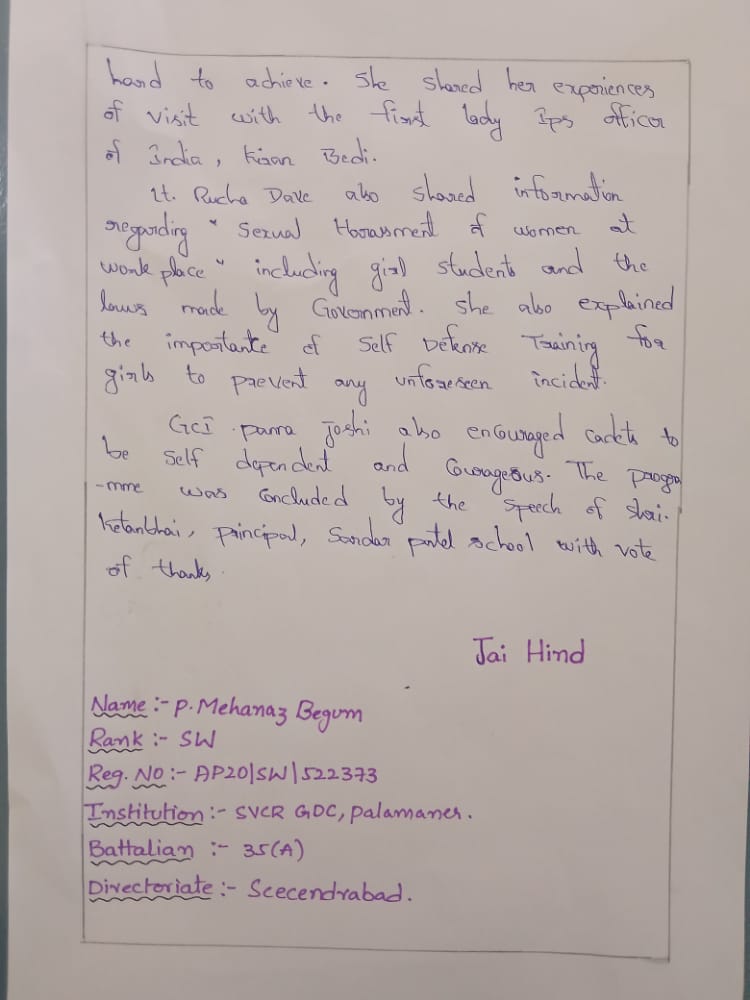 hard to achieve. She shared her experiences
of visit with the first lady Ips officer
of India, Kiran Bedi.
Lt. Rucha Dave also shared information
regarding "Sexual Harassment of women at
work place" including girl students and the
laws made by Government. She also explained
the importante of Self Defense Training for
girls to prevent any unforeseen incident.
GCI parra Joshi also encouraged cadets to
be self dependent and Courageous. The progra
-mme was concluded by the speech of shri.
Ketanbhai, principal, Sardar patel school with vote
of thanks.
Jai Hind
Name :- P. Mehanaz Begum
Rank :- SW
Reg. No :- AP20|SW|522373
Institution :- SVCR GDC, palamaner.
Battalian :- 35(A)
Directoriate :- Scecendrabad.